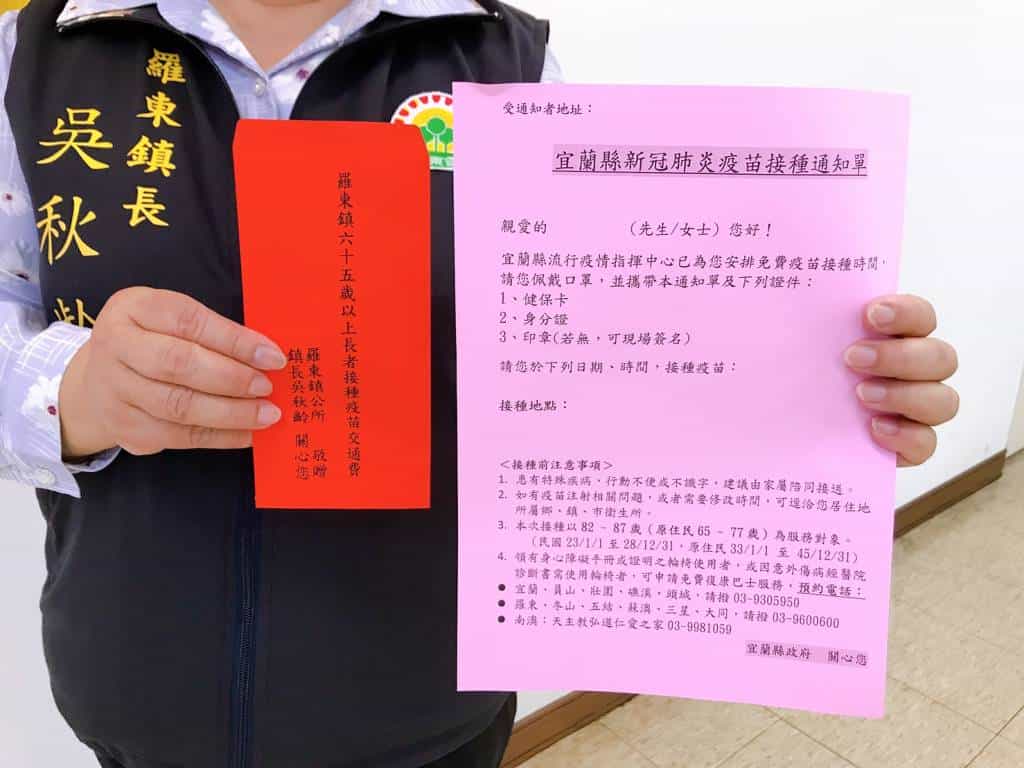 羅東鎮長
吳秋
羅東鎮六十五歲以上長者接種疫苗交通費
羅東鎮公所 敬贈
鎮長吳秋齡 關心您
受通知者地址：
宜蘭縣新冠肺炎疫苗接種通知單
親愛的 （先生/女士）您好！
宜蘭縣流行疫情指揮中心已為您安排免費疫苗接種時間，
請您佩戴口罩，並攜帶本通知單及下列證件：
1、健保卡
2、身分證
3、印章(若無，可現場簽名)
請您於下列日期、時間，接種疫苗：
接種地點：
<接種前注意事項>
1. 患有特殊疾病、行動不便或不識字，建議由家屬陪同接送。
2. 如有疫苗注射相關問題，或者需要修改時間，可逕洽您居住地
所屬鄉、鎮、市衛生所。
3. 本次接種以 82 ~ 87 歲（原住民 65 ~ 77 歲）為服務對象。
（民國 23/1/1 至 28/12/31，原住民 33/1/1 至 45/12/31）
4. 領有身心障礙手冊或證明之輪椅使用者，或因意外傷病經醫院
診斷書需使用輪椅者，可申請免費復康巴士服務，預約電話：
● 宜蘭、員山、壯圍、礁溪、頭城，請撥 03-9305950
● 羅東、冬山、五結、蘇澳、三星、大同，請撥 03-9600600
● 南澳：天主教弘道仁愛之家 03-9981059
宜蘭縣政府 關心您